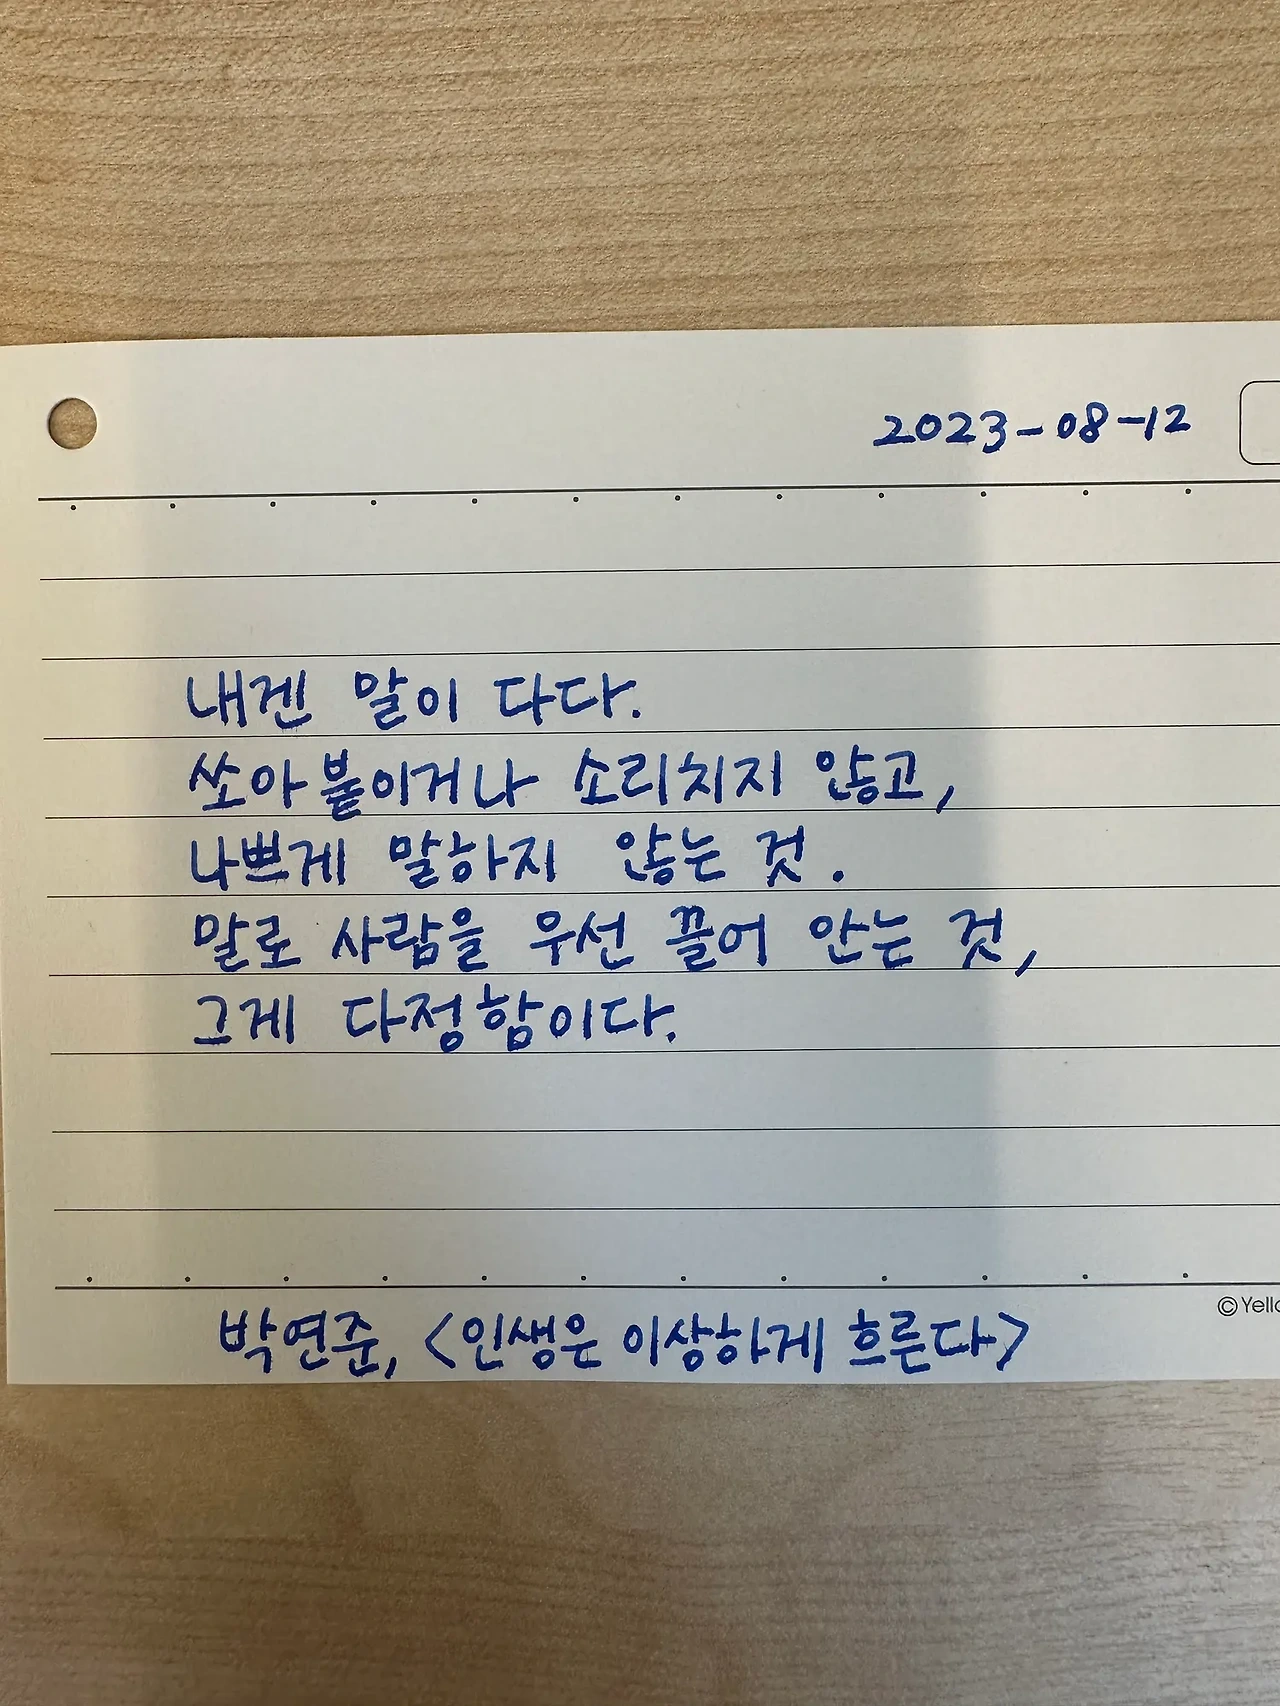 2023-08-12
내겐 말이 다다.
쏘아붙이거나 소리치지 않고,
나쁘게 말하지 않는 것.
말로 사람을 우선 끌어 안는 것,
그게 다정함이다.
©Yello
박연준, <인생은 이상하게 흐른다>